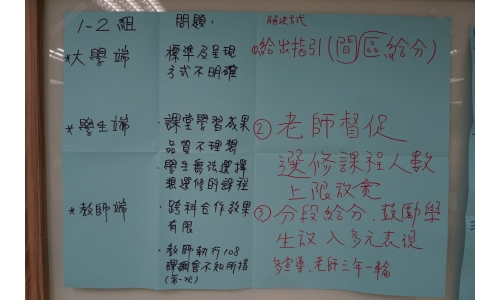 1-2組
問題:
解決方式
*大學端
標準及呈現
方式不明確
①給出指引(間區給分)
*學生端
·課堂學習成果
品質不理想
·學生無法選擇
想選修的課程
②老師督促
選修課程人數
上限放寬
*教師端
·跨科合作效果
有限
·教師執行108
課綱會不知所措
(第一次)
③分段給分,鼓勵學
生放入多元表現
多宣導,老師三年一輪